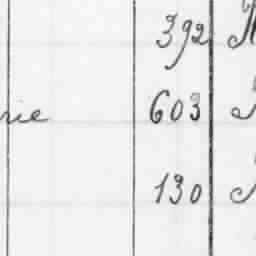 392
rie 603
130